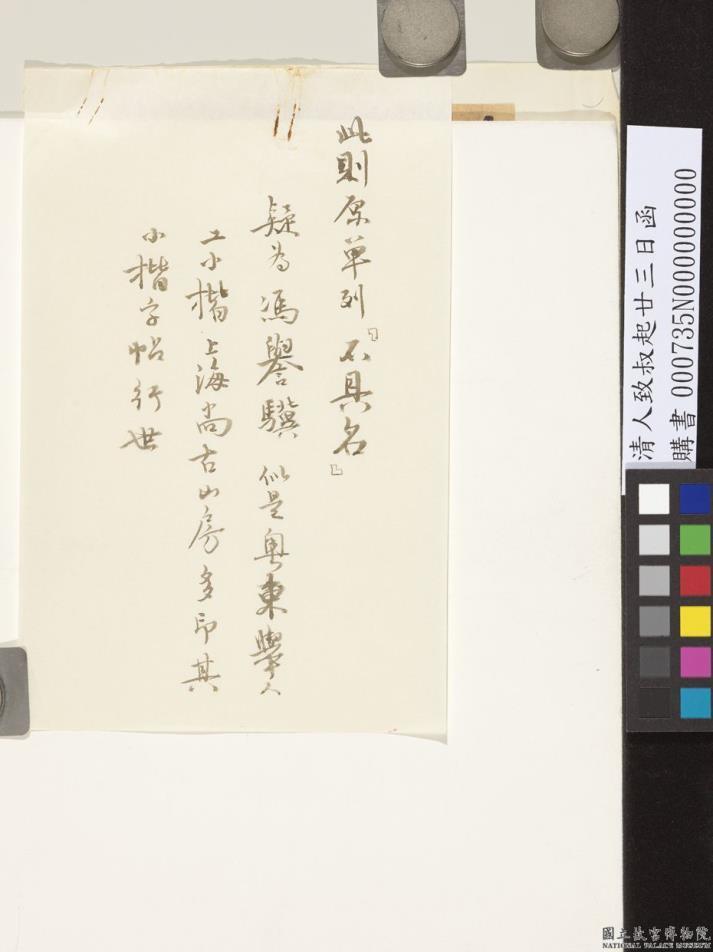 此則原单列『不具名』
疑為馮譽驥似是粵東舉人
工小楷上海尚古山房多印其
小楷字帖行世
清人致叔起廿三日函
購書 000735N000000000
國立故宮博物院
NATIONAL PALACE MUSEUM